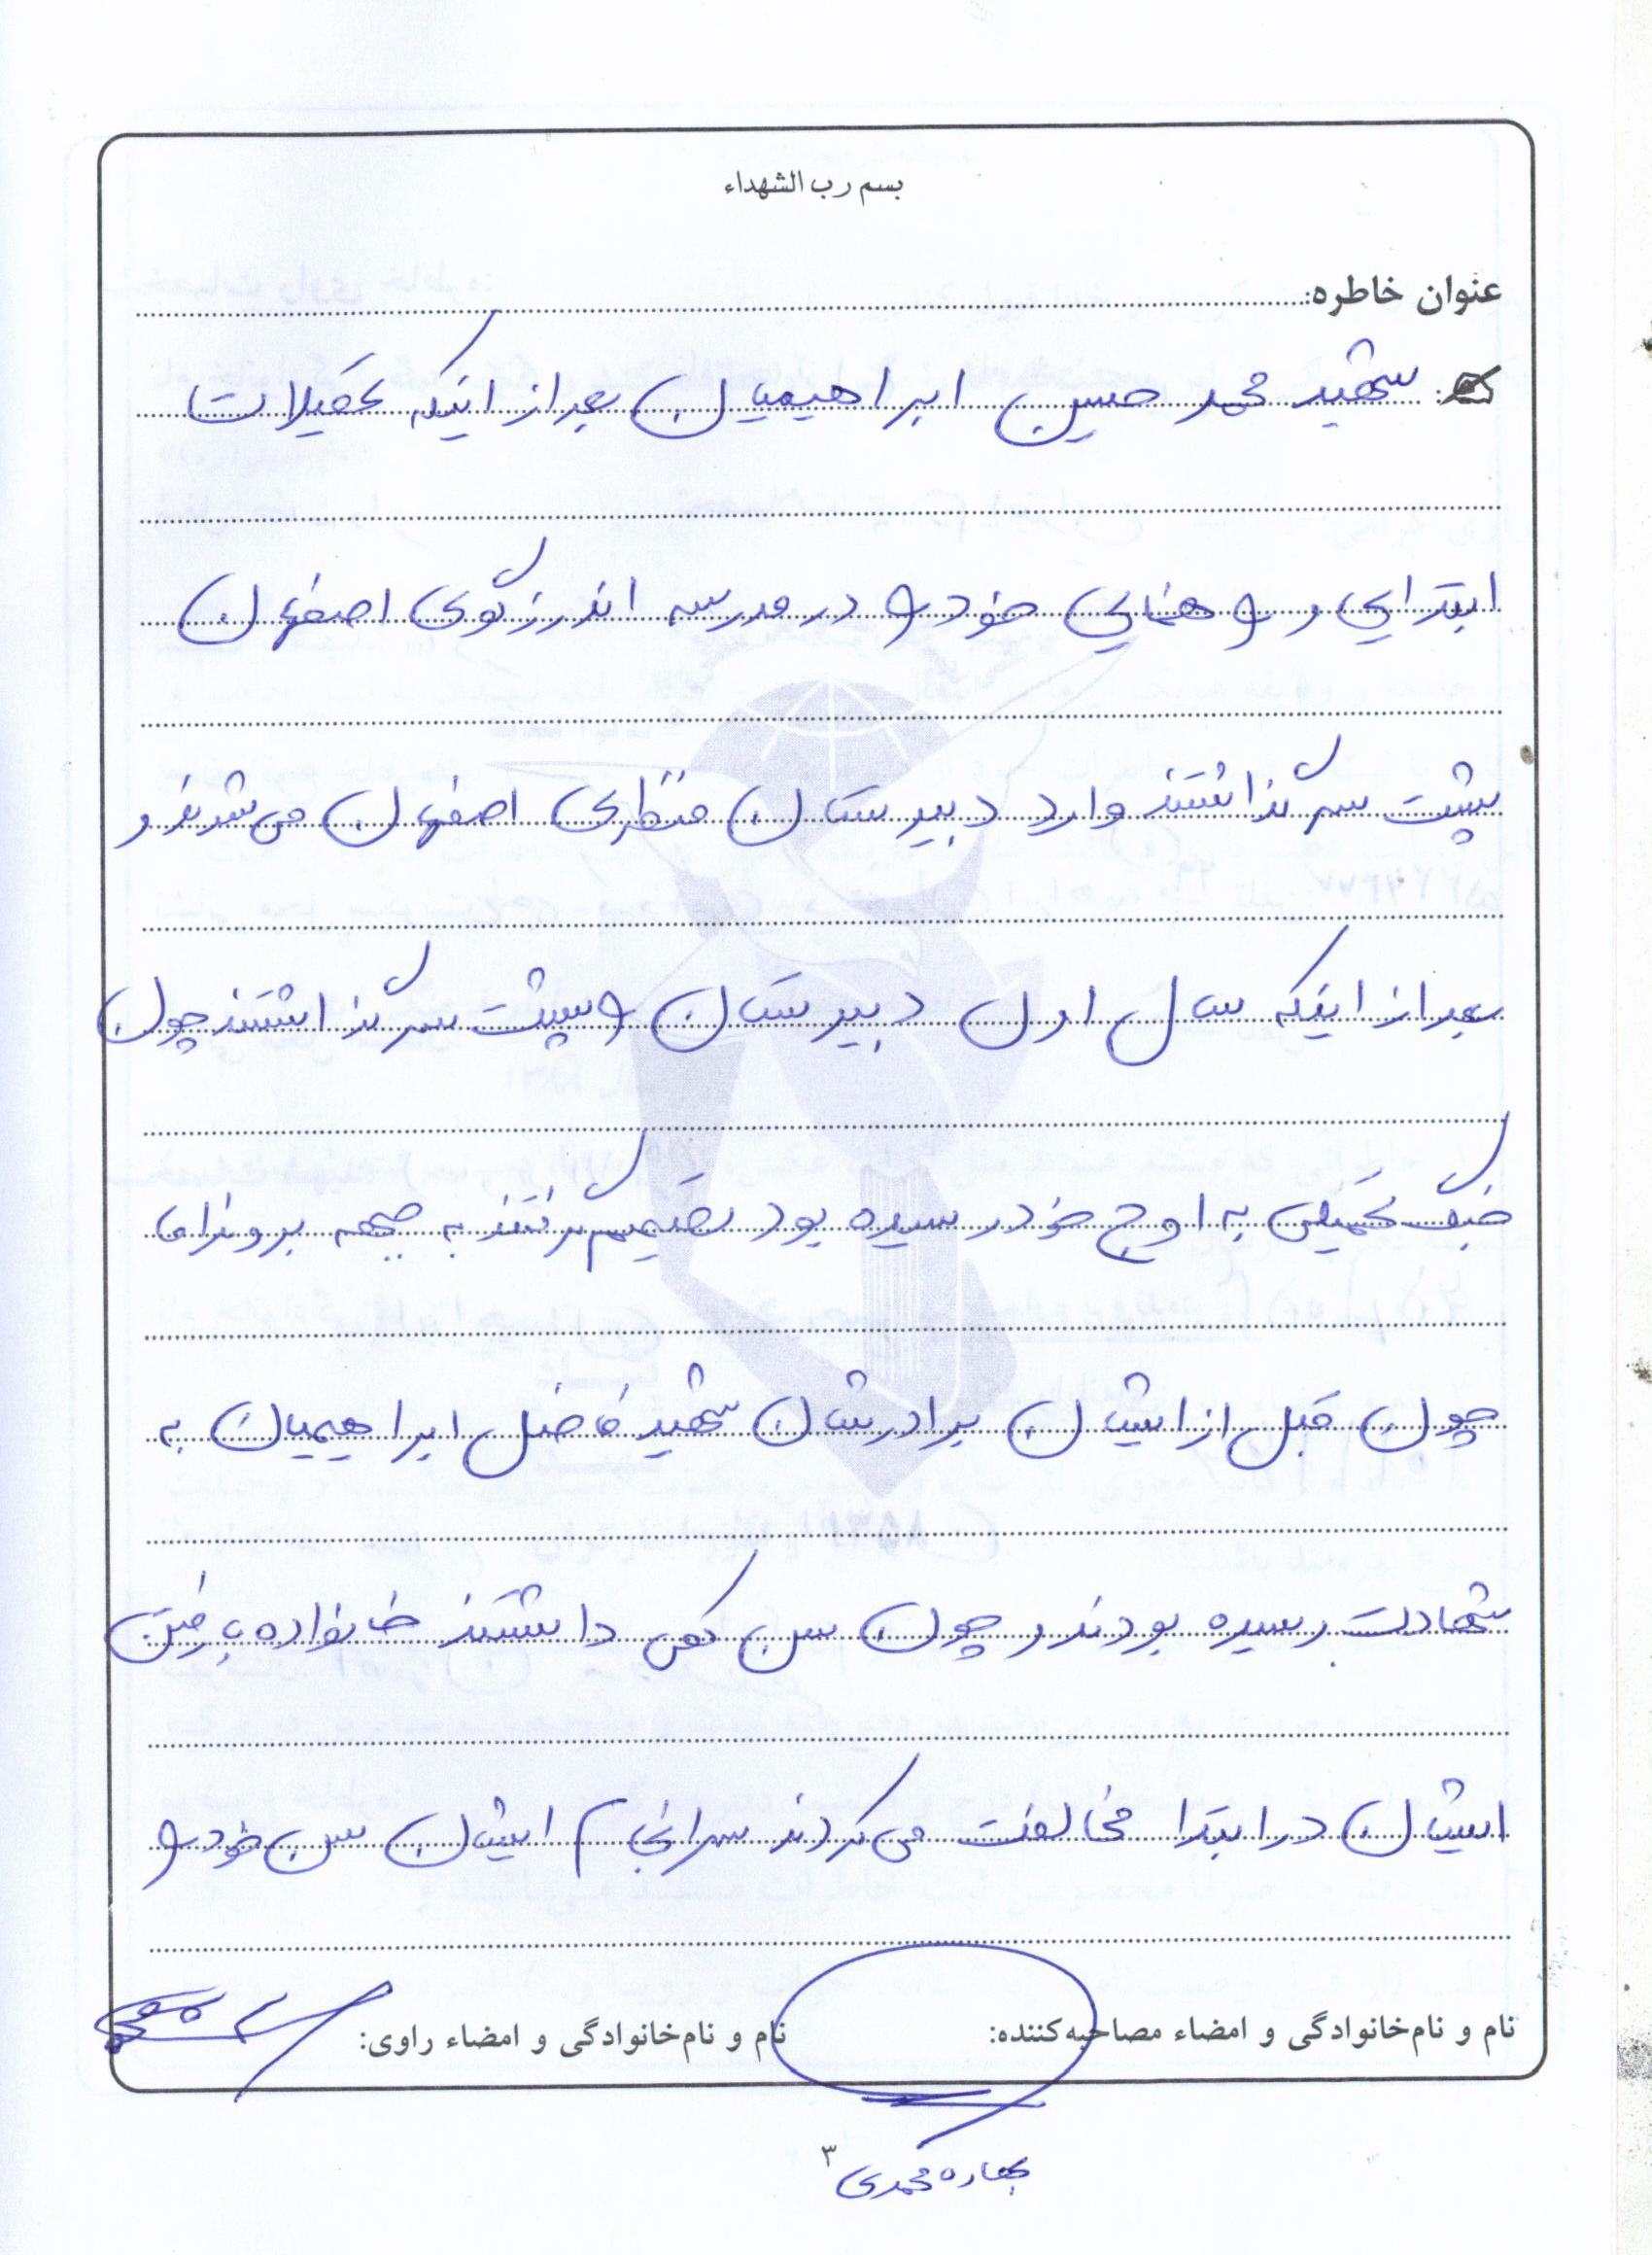 بسم رب الشهداء
عنوان خاطره:
شهید محمد حسین ابراهیمیان بعد از اینکه تحصیلات
ابتدایی و راهنمایی خود را در مدرسه اندرزگوی اصفهان
پشت سر گذاشتند وارد دبیرستان منتظری اصفهان می‌شدند و
بعد از اینکه سال اول دبیرستان را پشت سر گذاشتند چون
جنگ تحمیلی به اوج خود رسیده بود تصمیم گرفتند به جبهه بروند اما
چون قبل از ایشان برادرشان شهید فاضل ابراهیمیان به
شهادت رسیده بودند و چون سن کمی داشتند خانواده با رفتن
ایشان در ابتدا مخالفت می‌کردند سرانجام ایشان سن خود را
نام و نام‌خانوادگی و امضاء مصاحبه‌کننده: نام و نام‌خانوادگی و امضاء راوی:
۳
بهاره محمدی